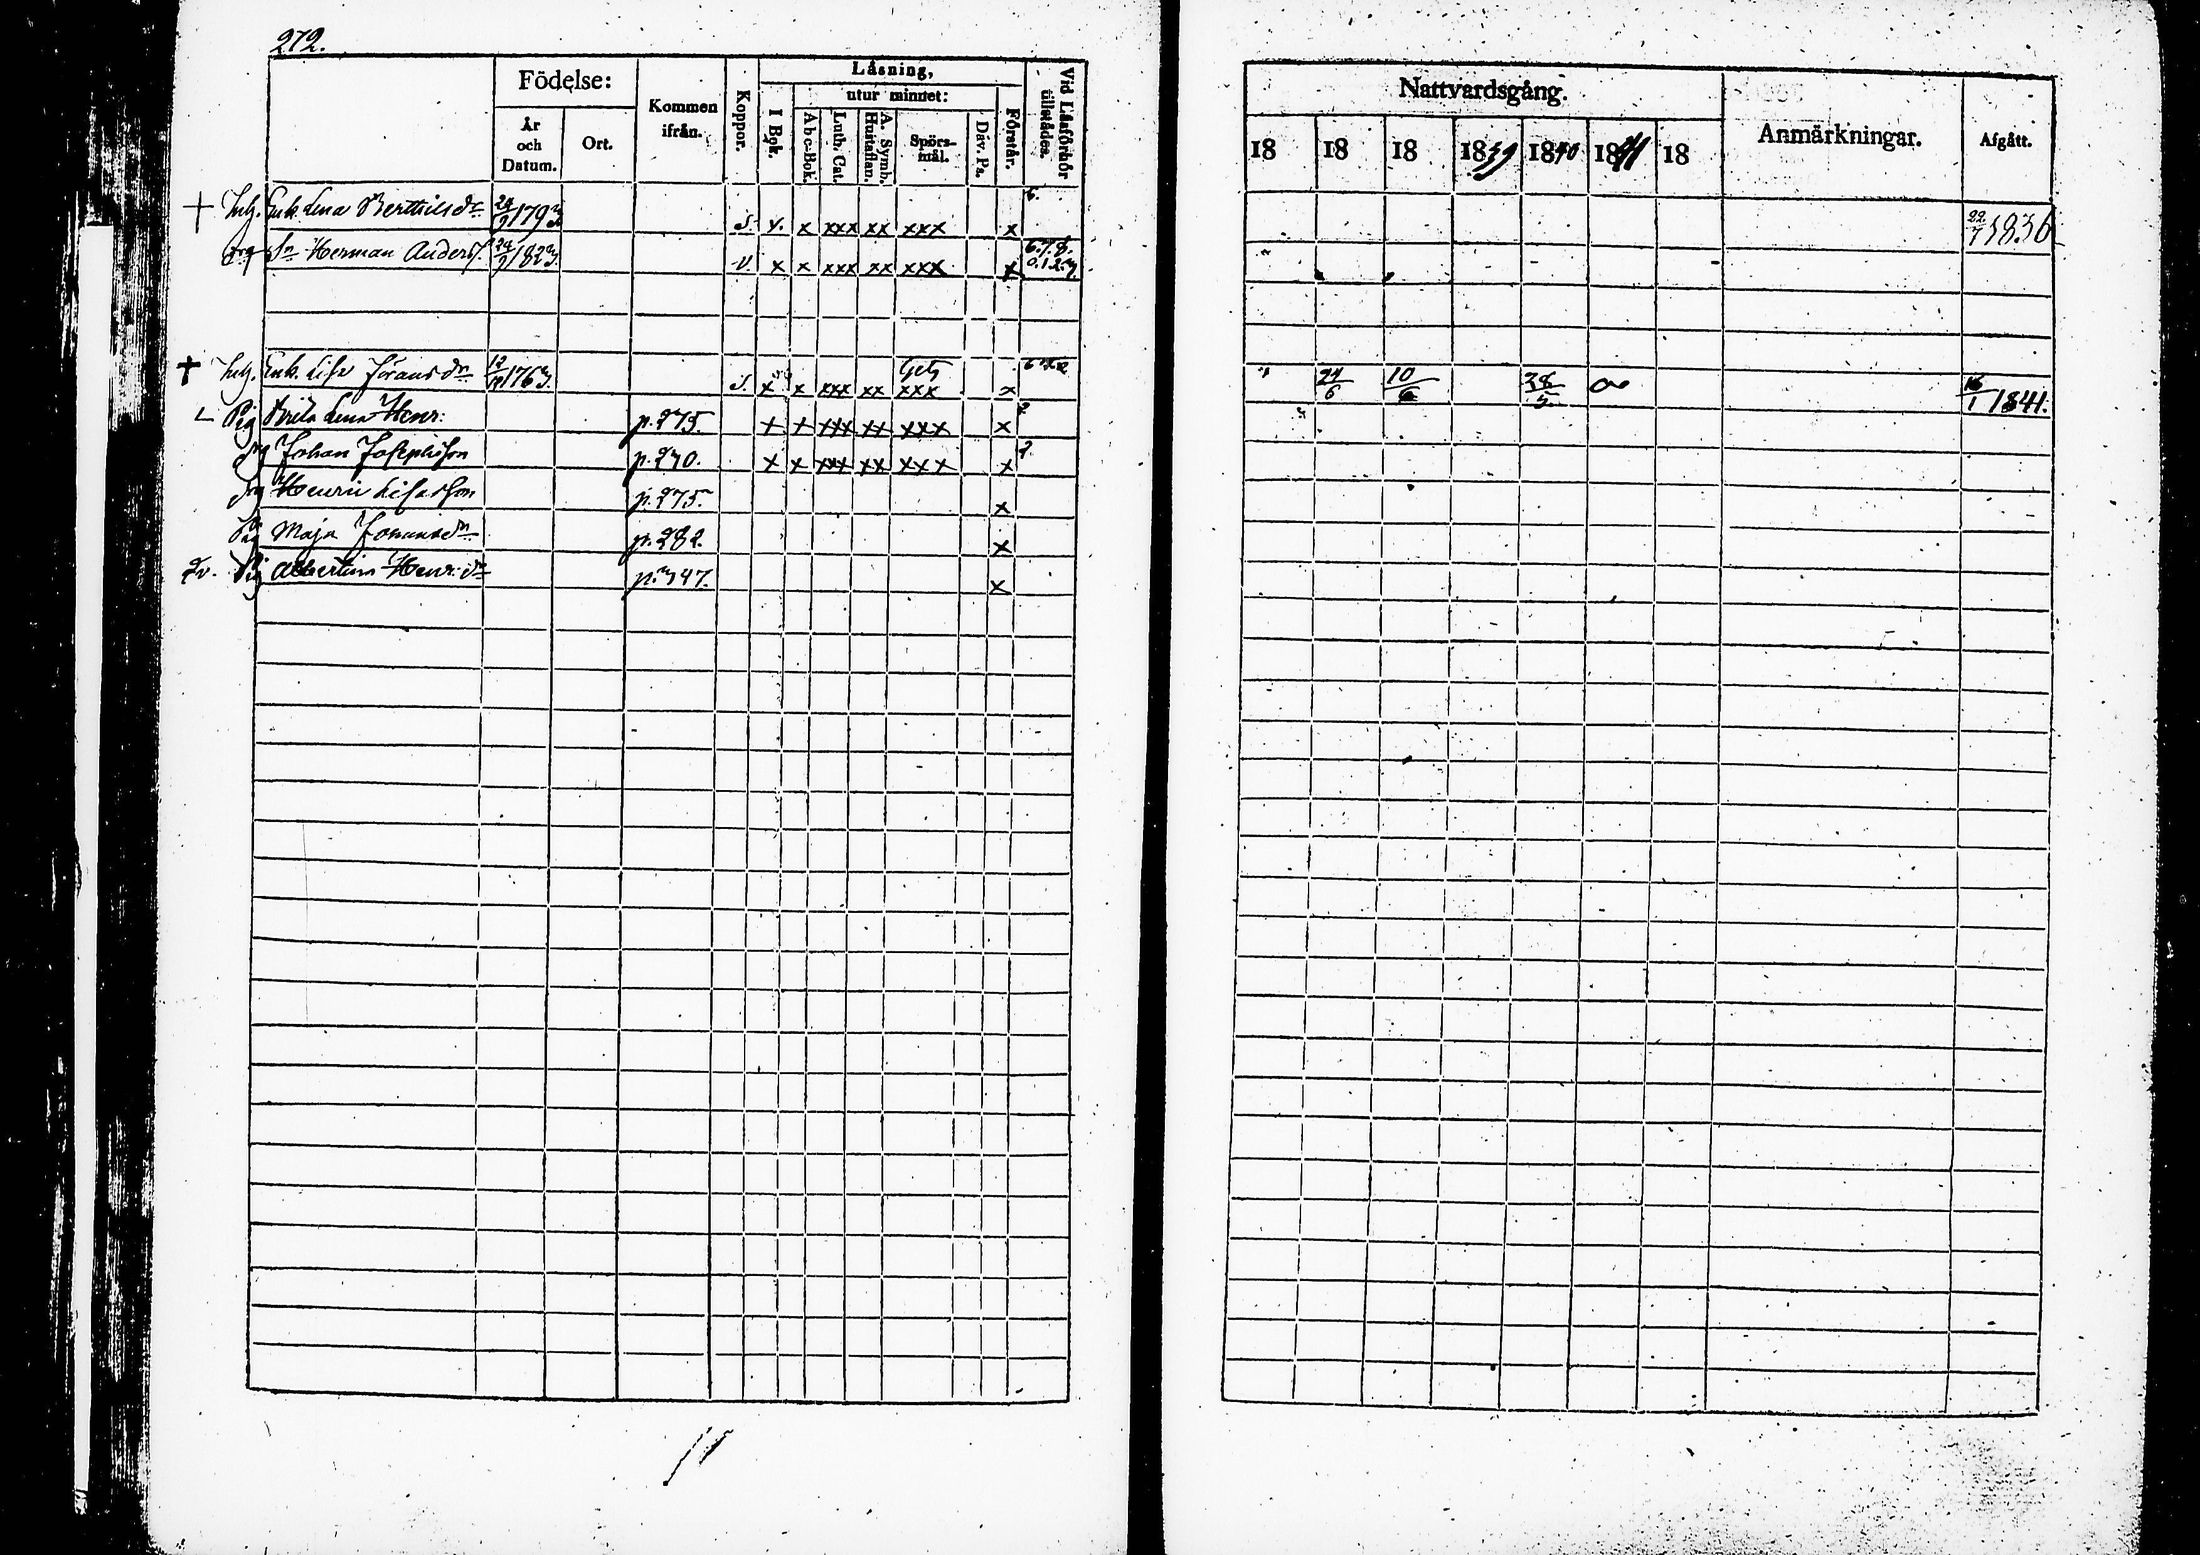 272.
Födelse:
År och Datum.
Ort.
Kommen ifrån.
Koppor.
Läsning,
I Bok.
utur minnet:
Abc-Bok.
Luth. Cat.
A. Symb. Hustaflan.
Spörs-mål.
Dav. Ps.
Förstår.
Vid Läsförhör tillstädes.
Nattvardsgång.
18 18 18 1839 1840 1841 18
Anmärkningar.
Afgått.
† Inh. Enk. Lena Bertthils dr 24/9 1793 S. v. x xxx xx xxx x 6. 22/7 1836
Sn Herman Anders. 24/9 1823. v. x x xxx xx xxx x 6.7.8. 0.1.2.3.
† Inh. Enk. Lisa Jörans dr 1763. S. x x xxx xx xxx x 24/6 10/6 28/5 16/1 1841.
Pig Brita Lena Henr: p. 275. x x xxx xx xxx x 2
Drg Johan Josephsson p. 270. x x xxx xx xxx x 2.
Drg Henric Lisasson p. 275. x
Pig Maja Johansdr p. 282. x
Pig Albertina Henr: dr p. 347. x